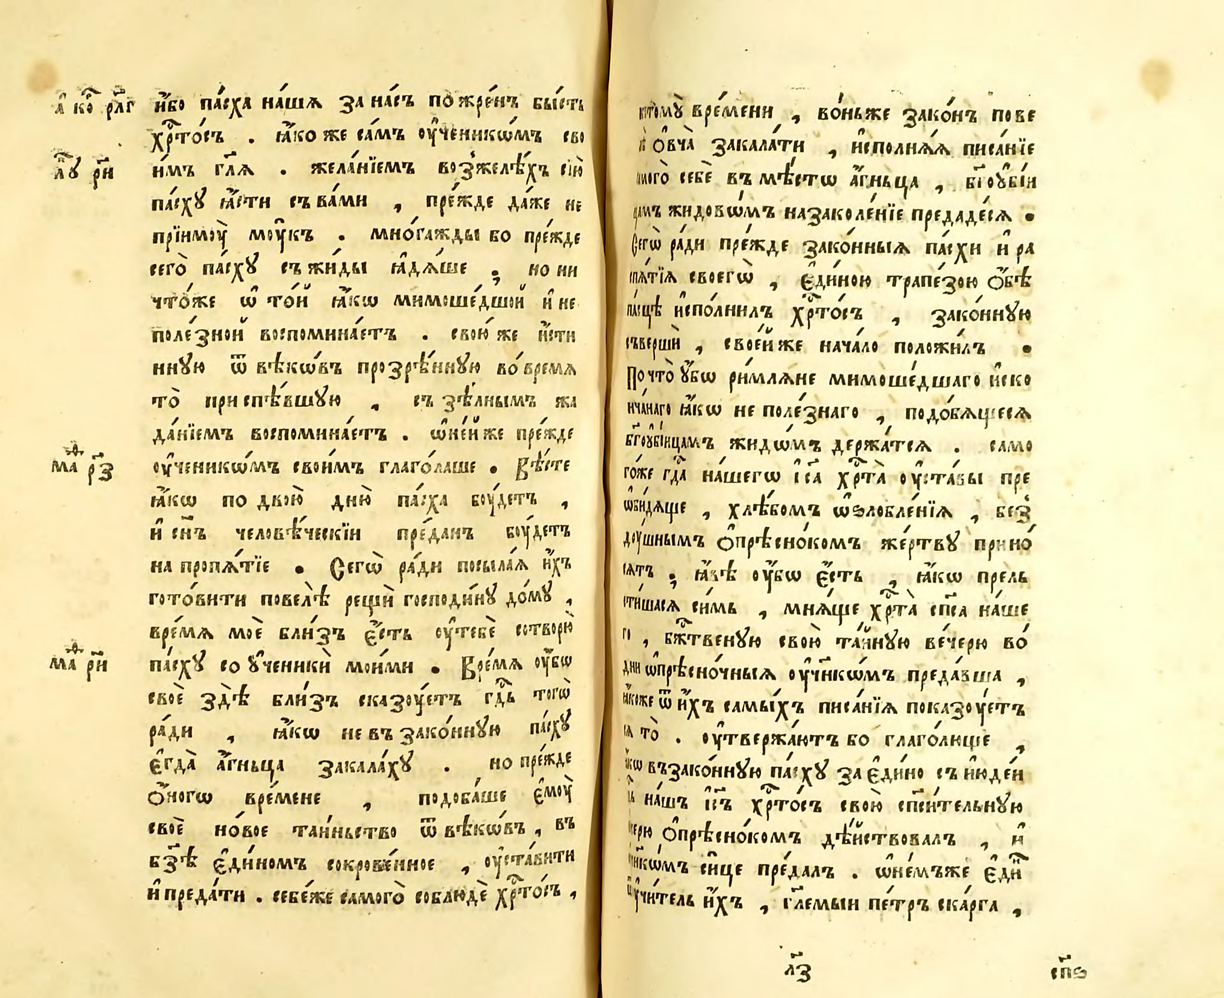 а҃ ко҃ рл҃г
и҆́бо па́сха на́шѧ за на́съ пожре́нъ бы́сть
хрⷭ҇то́съ . ꙗ҆́коже са́мъ ᲂу҆ченикѡ́мъ сво
и́мъ гл҃ѧ . жела́нїемъ возжелѣ́хъ сїю̀
лꙋ҃ рн҃
па́схꙋ ꙗ҆́сти съ ва́ми , пре́жде да́же не
прїимо́у мо́укъ . мно́гажды бо пре́жде
сего̀ па́схꙋ съ жи́ды ꙗ҆дѧ́ше , но ни
что́же ѡ҆ то́й ꙗ҆́кѡ мимоше́дшой и҆ не
поле́зной воспомина́етъ . свою́ же и҆́сти
ннꙋю ѿ вѣ́кѡвъ прозрѣ́ннꙋю во́ времѧ
то̀ приспѣ́вшꙋю , съ зѣ́лнымъ жа
да́нїемъ воспомина́етъ . ѡ҆ не́йже пре́жде
ᲂу҆ченикѡ́мъ свои́мъ глаго́лаше . Вѣ́сте
маⷴ҇ рз҃
ꙗ҆́кѡ по двою̀ дню̀ па́сха бо́удетъ ,
и҆ сн҃ъ человѣ́ческїи пре́данъ бо́удетъ
на пропѧ́тїе . Сегѡ̀ ра́ди посыла́ѧ и҆́хъ
гото́вити повелѣ̀ рещѝ господи́нꙋ до́мꙋ ,
вре́мѧ моѐ бли́зъ є҆́сть ᲂу҆ тебѐ сотворю̀
па́схꙋ со ᲂу҆ченикѝ мои́ми . Вре́мѧ ᲂу҆́бѡ
маⷴ҇ рн҃
своѐ здѣ̀ бли́зъ сказо́уетъ гдⷭ҇ь тогѡ̀
ра́ди , ꙗ҆́кѡ не въ зако́ннꙋю па́схꙋ
є҆гда̀ а҆́гньца закала́хꙋ . но пре́жде
ѻ҆́ногѡ вре́мене , подоба́ше є҆мо́у
своѐ но́вое та́иньство ѿ вѣ́кѡвъ , въ
бз҃ѣ є҆ди́номъ сокрове́нное , ᲂу҆ста́вити
и҆ преда́ти . себе́же самого̀ соблюдѐ хрⷭ҇то́съ ,
томꙋ̀ вре́мени , во́ньже зако́нъ пове
ѻ҆́вча закала́ти , и҆сполнѧ́ѧ писа́нїе
себѐ въ мѣ́стѡ а҆́гньца , бг҃оубі́и
жидовѡ́мъ на заколе́нїе предаде́сѧ .
Сегѡ̀ ра́ди пре́жде зако́нныѧ па́схи и҆ ра
спѧ́тїѧ своегѡ̀ , є҆ди́ною трапе́зою ѻ҆́бѣ
па́сцѣ и҆спо́лнилъ хрⷭ҇то́съ , зако́ннꙋю
съвершѝ , свое́йже нача́ло положи́лъ .
Почто̀ ᲂу҆́бѡ ри́млѧне мимоше́дшаго и҆ско
нча́наго ꙗ҆́кѡ не поле́знаго , подо́бѧщесѧ
бг҃оубі́йцамъ жидѡ́мъ держа́тсѧ . само
го́же гдⷭ҇а на́шегѡ і҆с҃а хрⷭ҇та̀ ᲂу҆ста́вы пре
ѡ҆би́дѧще , хлѣ́бомъ ѡ҆ѕлобле́нїѧ , без̾
до́ушнымъ ѻ҆прѣсно́комъ же́ртвꙋ прино́
сѧтъ . ꙗ҆́вѣ ᲂу҆́бѡ є҆́сть , ꙗ҆́кѡ прель
сти́шасѧ си́мъ , мнѧ́ще хрⷭ҇та̀ сп҃са на́ше
го , бжⷭ҇твенꙋю свою̀ та́йнꙋю ве́черю во́
дни ѡ҆прѣсно́чныѧ ᲂу҆ч҃нкѡ́мъ преда́вша ,
ꙗ҆́коже ѿ и҆́хъ самы́хъ писа́нїѧ показо́уетъ
сѧ то̀ . ᲂу҆твержа́ютъ бо глаго́люще ,
ꙗ҆́кѡ въ зако́ннꙋю па́схꙋ за є҆ди́но съ і҆юде́и
на́шъ і҆с҃ъ хрⷭ҇то́съ свою̀ сп҃си́тельнꙋю
ве́черю ѻ҆прѣсно́комъ дѣ́йствовалъ , и҆
ᲂу҆ченикѡ́мъ си́це пре́далъ . ѡ҆ не́мъже є҆ди́н
ᲂу҆чи́тель и҆́хъ , гл҃емыи пе́тръ ска́рга ,
лз҃
сп҃ѳ